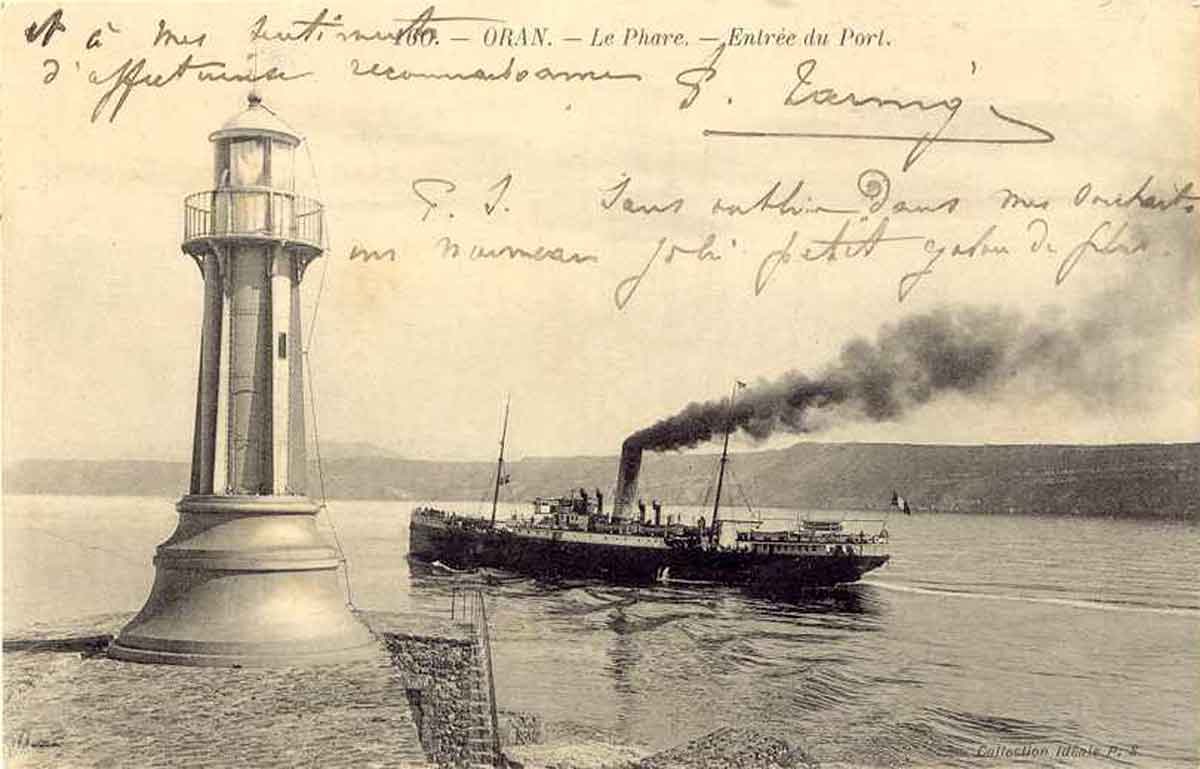 à mes sentiments
160. — ORAN. — Le Phare. — Entrée du Port.
d'affectueuse reconnaissance
P. S. Sans oublier dans mes souhaits
un nouveau joli petit galon de plus.
Collection Idéale P. S